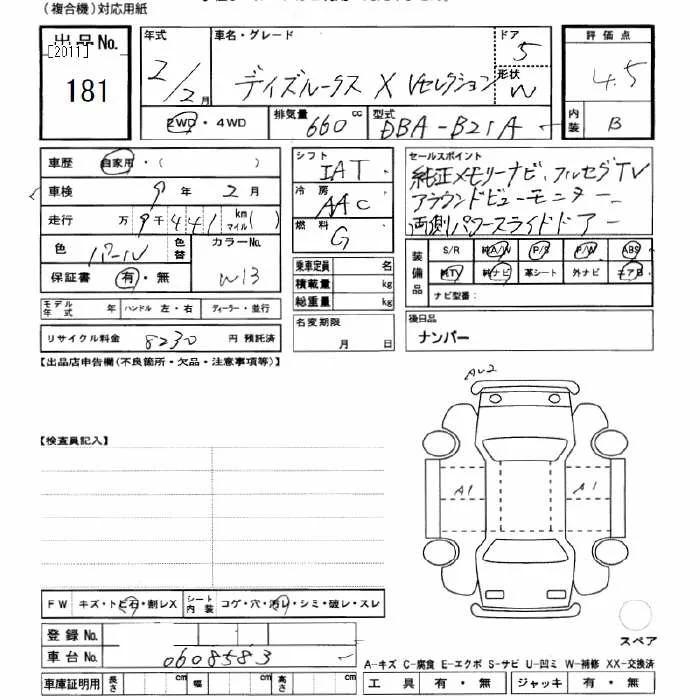 (複合機)対応用紙
出品No.
[2011]
181
年式
2/2月
車名・グレード
デイズルークス X Vセレクション
ドア
5
形状
W
評価点
4.5
内装
B
2WD・4WD
排気量
660 cc
型式
DBA-B21A
車歴 自家用・( )
車検 9年 2月
走行 万 9千441 km マイル( )
色 パール 色替
カラーNo. W13
保証書 有・無
シフト
IAT
冷房
AAC
燃料
G
乗車定員 名
積載量 kg
総重量 kg
セールスポイント
純正メモリーナビ、フルセグTV
アラウンドビューモニター
両側パワースライドドアー
装備品
S/R 純A/W P/S P/W ABS
純TV 純ナビ 革シート 外ナビ エアB
ナビ型番:
モデル年式 年 ハンドル 左・右 ディーラー・並行
リサイクル料金 8230 円 預託済
名変期限
月 日
後日品
ナンバー
【出品店申告欄(不良箇所・欠品・注意事項等)】
AU2
【検査員記入】
A1
A1
FW キズ・トビ石・割レX
シート内装 コゲ・穴・汚レ・シミ・破レ・スレ
スペア
登録No.
車台No. 0608583
車庫証明用 長さ cm 幅 cm 高さ cm
A-キズ C-腐食 E-エクボ S-サビ U-凹ミ W-補修 XX-交換済
工具 有・無 ジャッキ 有・無